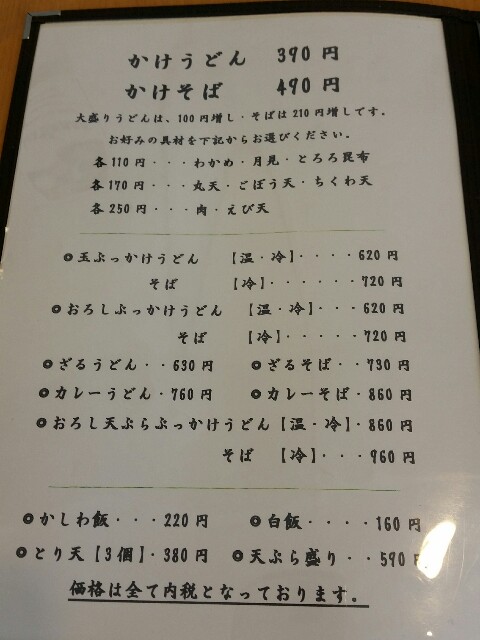 かけうどん 390 円
かけそば 490 円
大盛りうどんは、100 円増し・そばは 210 円増しです。
お好みの具材を下記からお選びください。
各 110 円・・・わかめ・月見・とろろ昆布
各 170 円・・・丸天・ごぼう天・ちくわ天
各 250 円・・・肉・えび天
◎玉ぶっかけうどん 【温・冷】・・・・620 円
そば 【冷】・・・・・・720 円
◎おろしぶっかけうどん 【温・冷】・・・620 円
そば 【冷】・・・・・720 円
◎ざるうどん・・630 円 ◎ざるそば・・730 円
◎カレーうどん・760 円 ◎カレーそば・860 円
◎おろし天ぷらぶっかけうどん【温・冷】・860 円
そば 【冷】・・・960 円
◎かしわ飯・・・220 円 ◎白飯・・・・160 円
◎とり天【3個】・380 円 ◎天ぷら盛り・・590 円
価格は全て内税となっております。